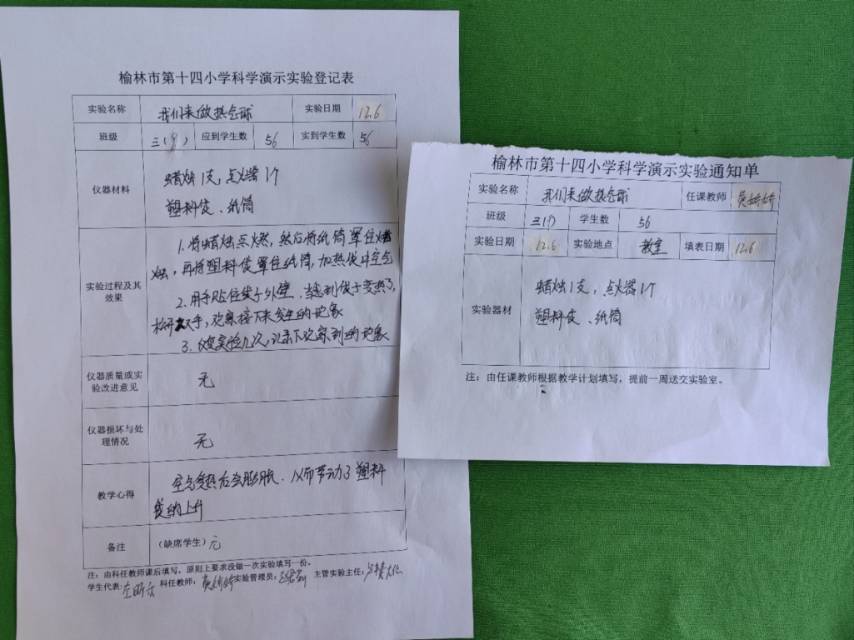 榆林市第十四小学科学演示实验登记表
实验名称 我们来做热气球 实验日期 12.6
班级 三(9) 应到学生数 56 实到学生数 56
仪器材料
蜡烛1支,点火器1个
塑料袋、纸筒
实验过程及其效果
1.将蜡烛点燃,然后将纸筒罩住蜡
烛,再将塑料袋罩住纸筒,加热袋中空气
2.用手贴住袋子外壁,当感到袋子变热了,
松开双手,观察接下来发生的现象
3.做实验几次,记录下观察到的现象
仪器质量或实验改进意见 无
仪器损坏与处理情况 无
教学心得
空气受热后会膨胀,从而带动了塑料
袋的上升
备注 (缺席学生)无
注:由科任教师课后填写,原则上要求没做一次实验填写一份。
学生代表: 科任教师: 实验管理员: 主管实验主任:
榆林市第十四小学科学演示实验通知单
实验名称 我们来做热气球 任课教师
班级 三(9) 学生数 56
实验日期 12.6 实验地点 教室 填表日期 12.6
实验器材
蜡烛1支,点火器1个
塑料袋、纸筒
注:由任课教师根据教学计划填写,提前一周送交实验室。